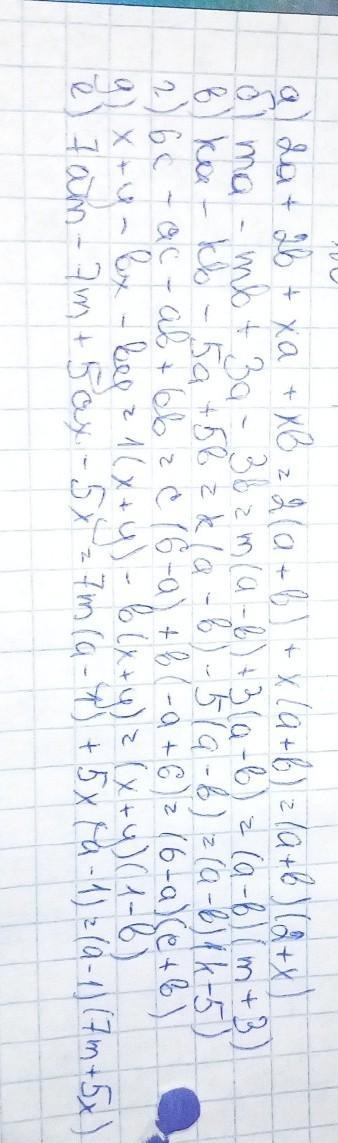 а) 2a + 2b + xa + xb = 2(a + b) + x(a+b) = (a+b)(2+x)
б) ma - mb + 3a - 3b = m(a-b) + 3(a-b) = (a-b)(m+3)
в) ka - kb - 5a + 5b = k(a - b) - 5(a - b) = (a-b)(k-5)
г) 6c - ac - ab + 6b = c(6-a) + b(-a+6) = (6-a)(c+b)
д) x+y - bx - by = 1(x+y) - b(x+y) = (x+y)(1-b)
е) 7am - 7m + 5ax - 5x = 7m(a-1) + 5x(a-1) = (a-1)(7m+5x)